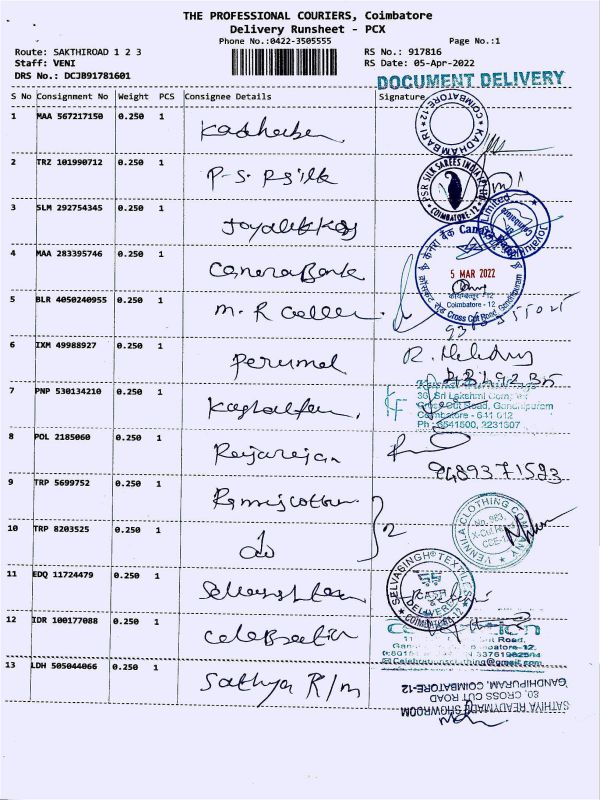 THE PROFESSIONAL COURIERS, Coimbatore
Delivery Runsheet - PCX
Phone No.:0422-3505555
Page No.:1
Route: SAKTHIROAD 1 2 3
RS No.: 917816
Staff: VENI
RS Date: 05-Apr-2022
DRS No.: DCJB91781601
DOCUMENT DELIVERY
S No Consignment No Weight PCS Consignee Details Signature
1 MAA 567217150 0.250 1
COIMBATORE-12 KADHAMBARI
2 TRZ 101990712 0.250 1 P.S.R silk
PSR SILK SAREES INDIA COIMBATORE-12
3 SLM 292754345 0.250 1
Limited Coimbatore
4 MAA 283395746 0.250 1 Canera Bank
केनरा बैंक Canara Bank
5 MAR 2022
कोयम्बत्तूर - 12
Coimbatore - 12
Cross Cut Road, Gandhipuram
5 BLR 4050240955 0.250 1 M. R
6 IXM 49988927 0.250 1 Perumal
7 PNP 530134210 0.250 1
36, Sri Lakshmi Complex
Cross Cut Road, Gandhipuram
Coimbatore - 641 012
Ph : 6541500, 2231307
8 POL 2185060 0.250 1 Rajarajan
9489371523
9 TRP 5699752 0.250 1
TENNILA CLOTHING COMPANY
No. 983,
X-Cut Road
CCE-12
10 TRP 8203525 0.250 1 do 2
11 EDQ 11724479 0.250 1
SELVASINGH TEXTILES
CASH
DELIVERED
COIMBATORE-12
12 IDR 100177088 0.250 1 Celebration
13 LDH 505044066 0.250 1 Sathya R/m
SATHIYA READYMADE SHOWROOM
30, CROSS CUT ROAD
GANDHIPURAM, COIMBATORE-12